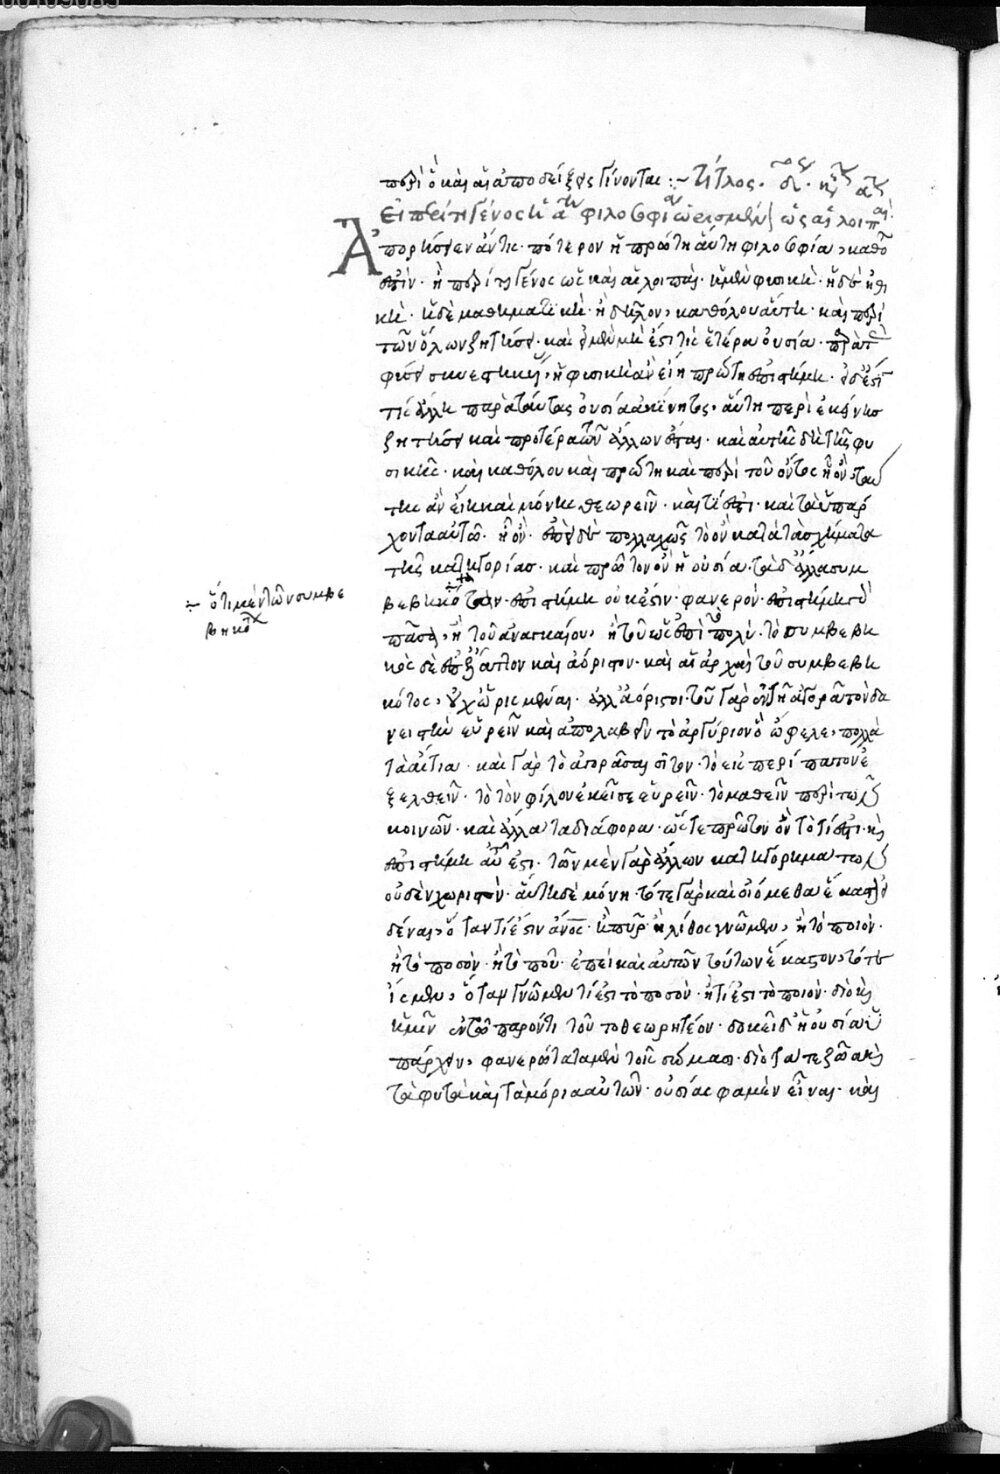 περὶ ὃ καὶ αἱ ἀποδείξεις γίνονται :~ Τίτλος. δ.
Εἰ περί τι γένος ἡ α φιλοσοφία ὡρισμένον ὡς αἱ λοιπαί
Ἀπορήσειεν ἄν τις· πότερον ἡ πρώτη αὕτη φιλοσοφία, καθό
ἐστιν· ἢ περί τι γένος ὡς καὶ αἱ λοιπαί· ἡ μὲν φυσική· ἡ δὲ ἠθι
κή· ἡ δὲ μαθηματική· ἢ δῆλον, καθόλου αὕτη· καὶ περὶ
τῶν ὅλων ζητήσει· καὶ εἰ μὲν μή ἐστί τις ἑτέρα οὐσία· παρὰ τ
φύσει συνεστηκυί, ἡ φυσικὴ ἂν εἴη πρώτη ἐπιστήμη· εἰ δ' ἔστι
τις ἄλλη παρὰ ταύτας οὐσία ἀκίνητος, αὕτη περὶ ἐκείνης
ζητήσει καὶ προτέρα τῶν ἄλλων ἔσται· καὶ αὐτῆς δὴ τῆς φυ
σικῆς· καὶ καθόλου καὶ πρώτη καὶ περὶ τοῦ ὄντος ᾗ ὄν, ταύ
της ἂν εἴη καὶ μόνης θεωρεῖν· καὶ τί ἐστι· καὶ τὰ ὑπάρ
χοντα αὐτῷ· ᾗ ὄν· ἐπεὶ δὲ πολλαχῶς τὸ ὂν κατὰ τὰ σχήματα
της κατηγορίας· καὶ πρῶτον ὂν ἡ οὐσία· τὰ δ' ἄλλα συμ
βεβηκότων· ἐπιστήμη οὐκ ἔστιν· φανερόν· ἐπιστήμη
÷ ὅτι μὲν τῶν συμβε
βηκο
πᾶσα, ἢ τοῦ ἀναγκαίου, ἢ τοῦ ὡς ἐπὶ τὸ πολύ· τὸ συμβεβη
κὸς δὲ ἄτακτον καὶ ἀόριστον· καὶ αἱ ἀρχαὶ τοῦ συμβεβη
κότος, οὐχ ὡρισμέναι· ἀλλ' ἀόριστοι· τοῦ γὰρ ἐν τῇ ἀγορᾷ τὸν δα
νειστὴν εὑρεῖν καὶ ἀπολαβεῖν τὸ ἀργύριον ὃ ὤφειλε, πολλὰ
τὰ αἴτια· καὶ γὰρ τὸ ἀγοράσαι σῖτον· τὸ εἰς περίπατον ἐ
ξελθεῖν· τὸ τὸν φίλον ἐκεῖσε εὑρεῖν· τὸ μαθεῖν περὶ τῶν
κοινῶν· καὶ ἄλλα τὰ διάφορα· ὥστε πρῶτον ὂν τὸ τί ἐστι· καὶ
ἐπιστήμη αὐτοῦ ἐστι· τῶν μὲν γὰρ ἄλλων κατηγορημάτων
οὐδὲν χωριστόν· αὕτη δὲ μόνη· τότε γὰρ καὶ οἰόμεθα ἕκαστον εἰ
δέναι, ὅταν τί ἐστιν ἄνος· ἢ πῦρ· ἢ λίθος γνῶμεν, ἢ τὸ ποιόν·
ἢ τὸ ποσόν· ἢ τὸ ποῦ· ἐπεὶ καὶ αὐτῶν τούτων ἕκαστον, τότε
ἴσμεν, ὅταν γνῶμεν τί ἐστι τὸ ποσόν· ἢ τί ἐστι τὸ ποιόν· διὸ καὶ
ἡμῖν ἐν τῷ παρόντι τοῦτο θεωρητέον· δοκεῖ δ' ἡ οὐσία ὑ
πάρχειν, φανερώτατα μὲν τοῖς σώμασι· διὸ τά τε ζῷα καὶ
τὰ φυτὰ καὶ τὰ μόρια αὐτῶν· οὐσίας φαμὲν εἶναι· καὶ